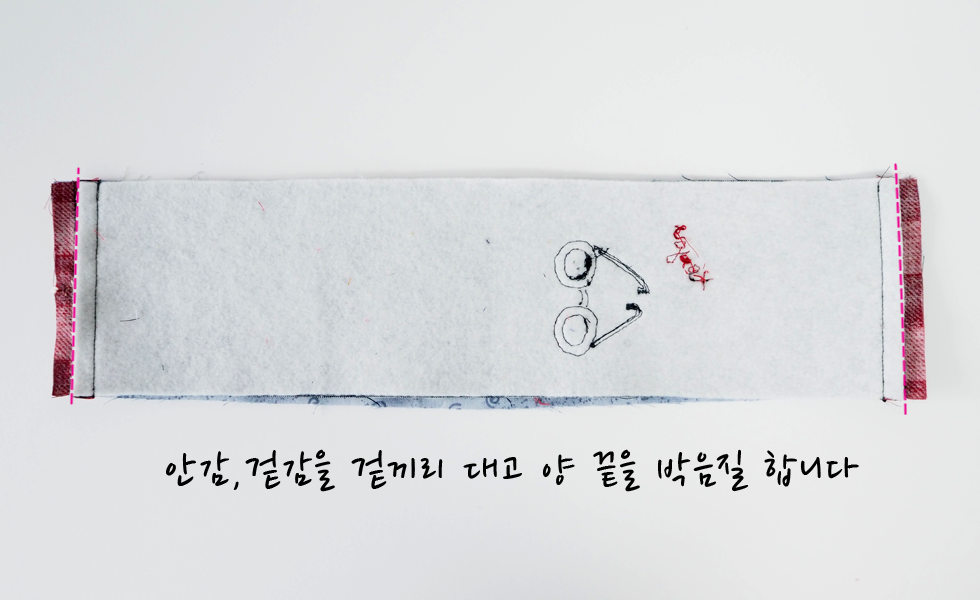 안감, 겉감을 겉끼리 대고 양 끝을 박음질 합니다